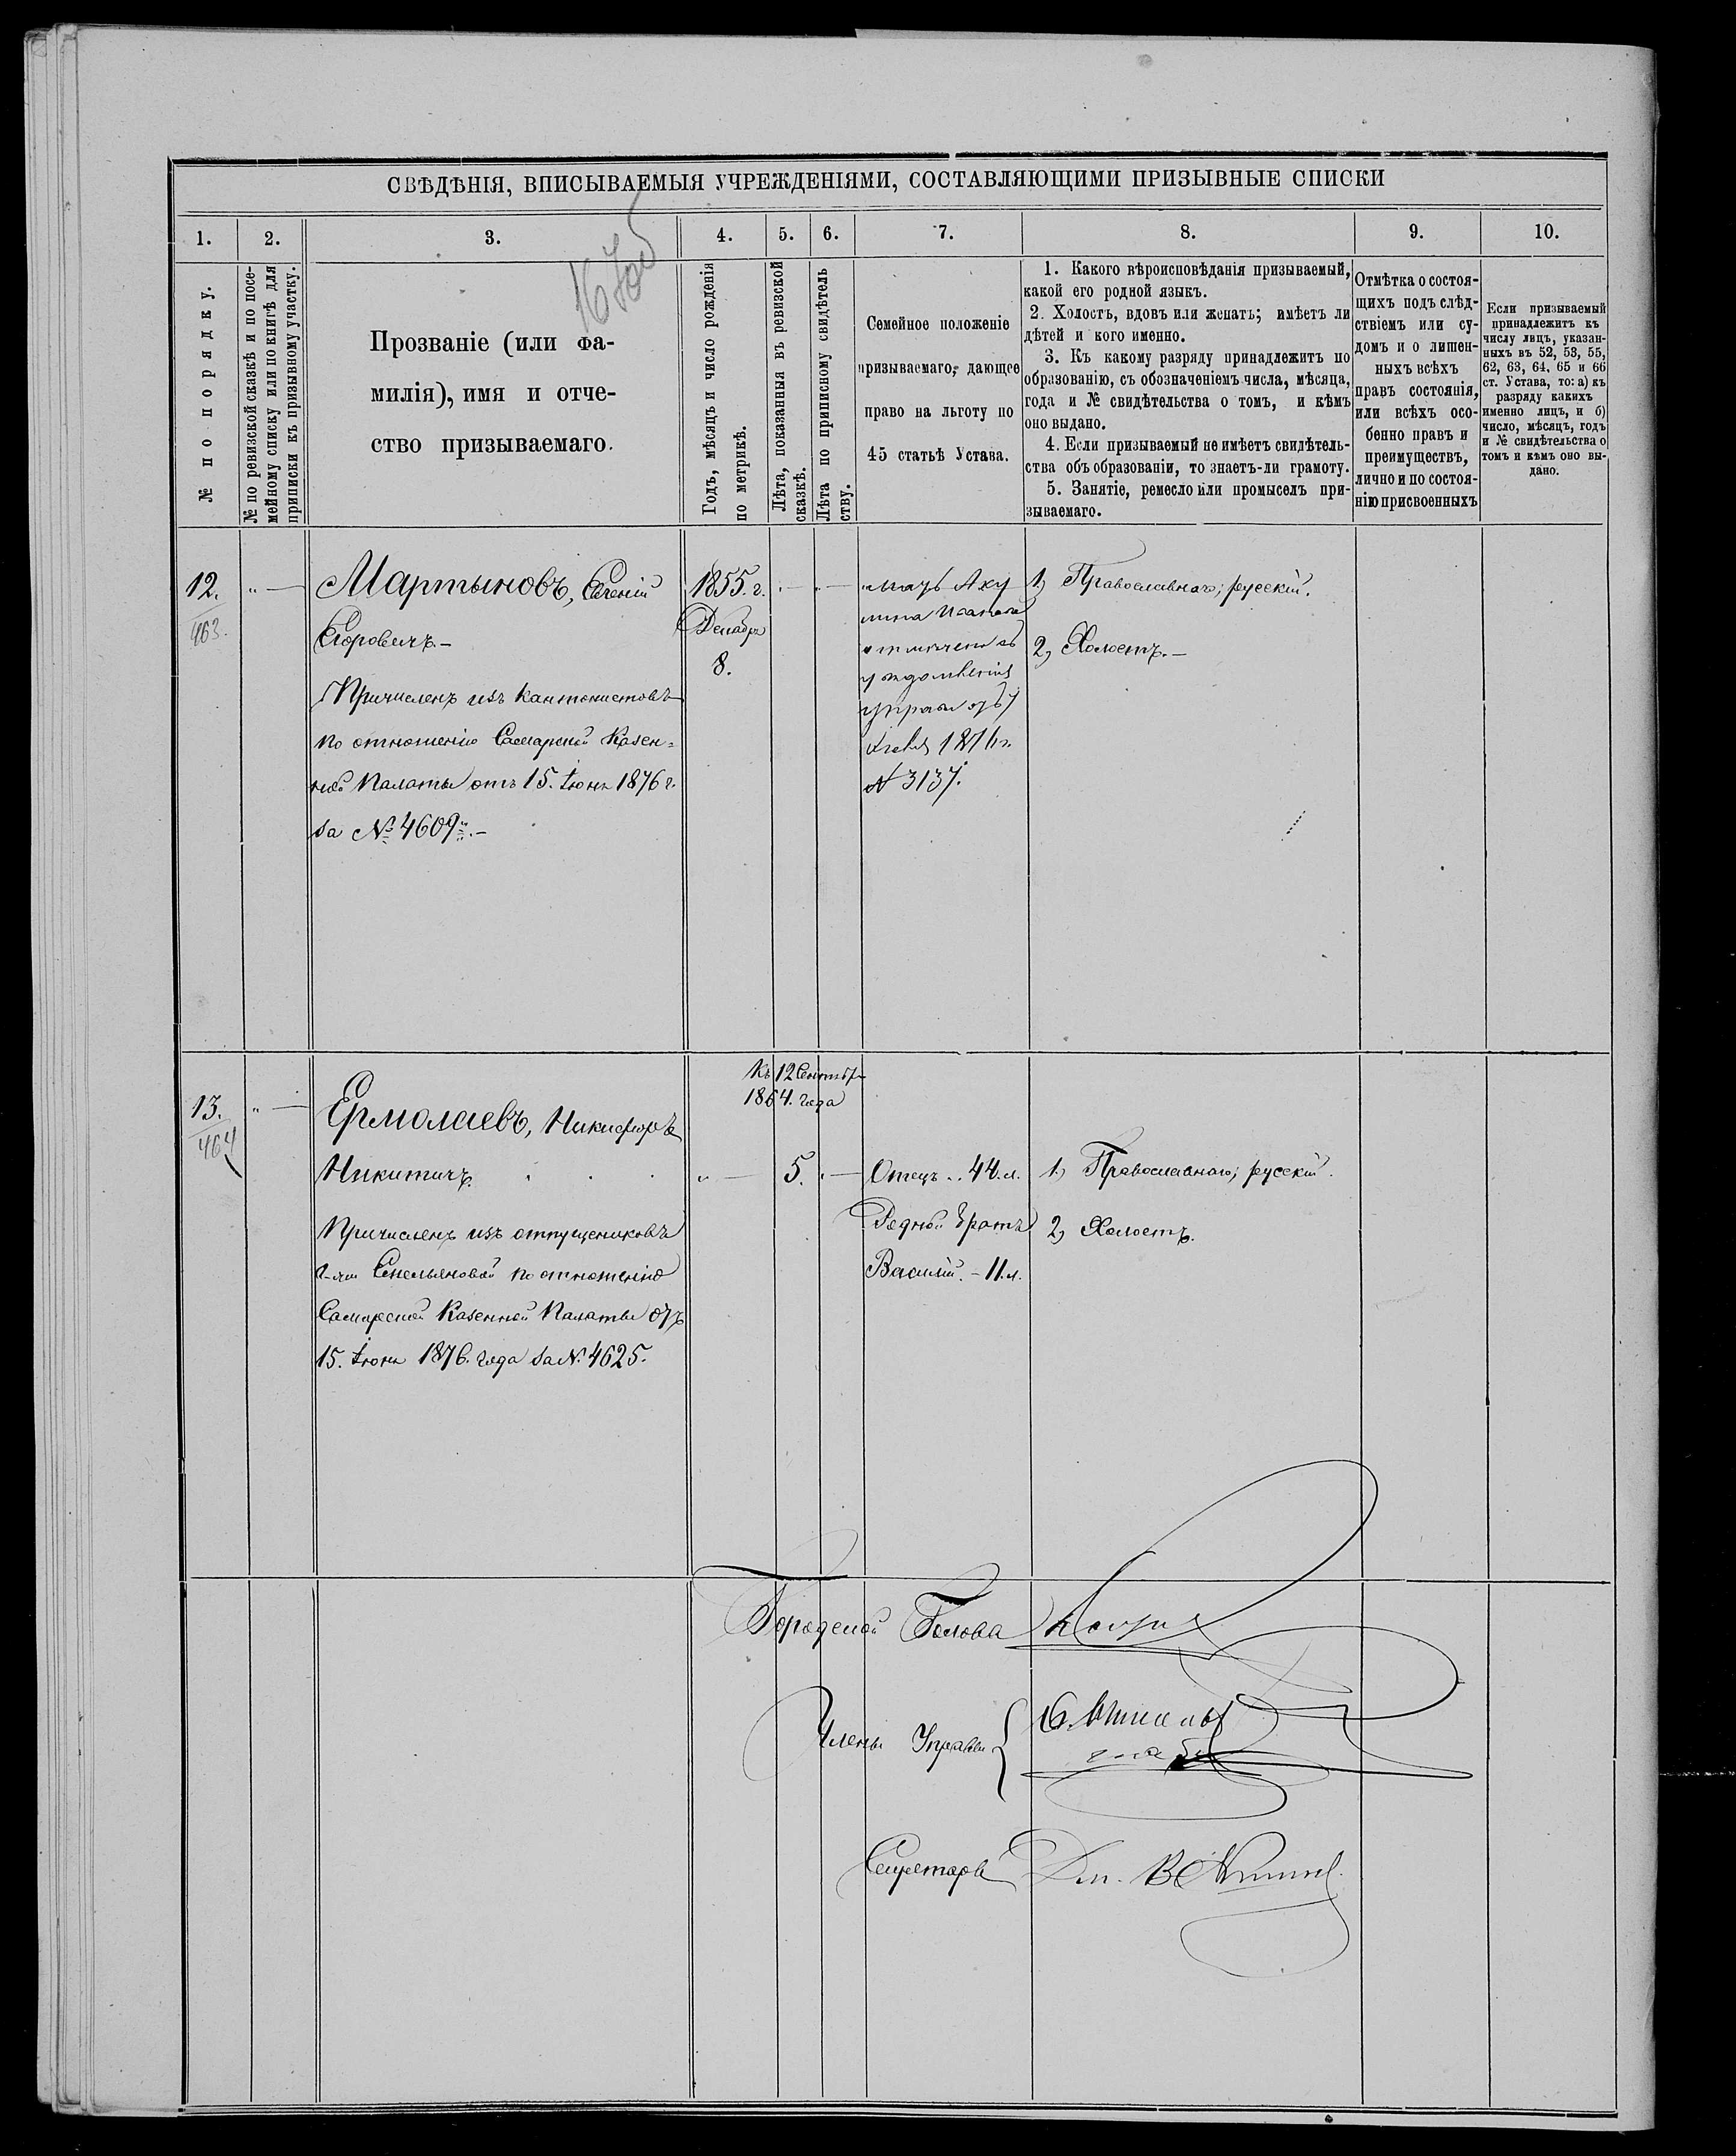 СВѢДѢНІЯ, ВПИСЫВАЕМЫЯ УЧРЕЖДЕНІЯМИ, СОСТАВЛЯЮЩИМИ ПРИЗЫВНЫЕ СПИСКИ
1.
2.
3.
4.
5.
6.
7.
8.
9.
10.
№ по порядку.
№ по ревизской сказкѣ и по посе-
мейному списку или по книгѣ для
приписки къ призывному участку.
Прозваніе (или фа-
милія), имя и отче-
ство призываемаго.
Годъ, мѣсяцъ и число рожденія
по метрикѣ.
Лѣта, показанныя въ ревизской
сказкѣ.
Лѣта по приписному свидѣтель
ству.
Семейное положеніе
призываемаго, дающее
право на льготу по
45 статьѣ Устава.
1. Какого вѣроисповѣданія призываемый,
какой его родной языкъ.
2. Холостъ, вдовъ или женатъ; имѣетъ ли
дѣтей и кого именно.
3. Къ какому разряду принадлежитъ по
образованію, съ обозначеніемъ числа, мѣсяца,
года и № свидѣтельства о томъ, и кѣмъ
оно выдано.
4. Если призываемый не имѣетъ свидѣтель-
ства объ образованіи, то знаетъ-ли грамоту.
5. Занятіе, ремесло или промыселъ при-
зываемаго.
Отмѣтка о состоя-
щихъ подъ слѣд-
ствіемъ или су-
домъ и о лишен-
ныхъ всѣхъ
правъ состоянія,
или всѣхъ осо-
бенно правъ и
преимуществъ,
лично и по состоя-
нію присвоенныхъ
Если призываемый
принадлежитъ къ
числу лицъ, указан-
ныхъ въ 52, 53, 55,
62, 63, 64, 65 и 66
ст. Устава, то: а) къ
разряду какихъ
именно лицъ, и б)
число, мѣсяцъ, годъ
и № свидѣтельства о
томъ и кѣмъ оно вы-
дано.
12.
463.
Мартыновъ,
Егоровичъ.-
Причисленъ изъ кантонистовъ
по отношенію Самарской Казен-
ной Палаты отъ 15. Іюня 1876 г.
за № 4609.-
1855. г.
Декабря
8.
мать Аку
лина
1876 г.
№ 3137.
1, Православнаго; русскій.
2, Холостъ.-
13.
464
Ермолаевъ, Никифоръ
Никитичъ.
Причисленъ изъ отпущениковъ
по отношенію
Самарской Казенной Палаты отъ
15. Іюня 1876. года за № 4625.
Къ 12 Сентябр
1864. года
5.
Отецъ .. 44. л.
Родной братъ
Василій. - 11. л.
1, Православнаго; русскій.
2, Холостъ.
Городской Голова
Члены Управы
Секретарь